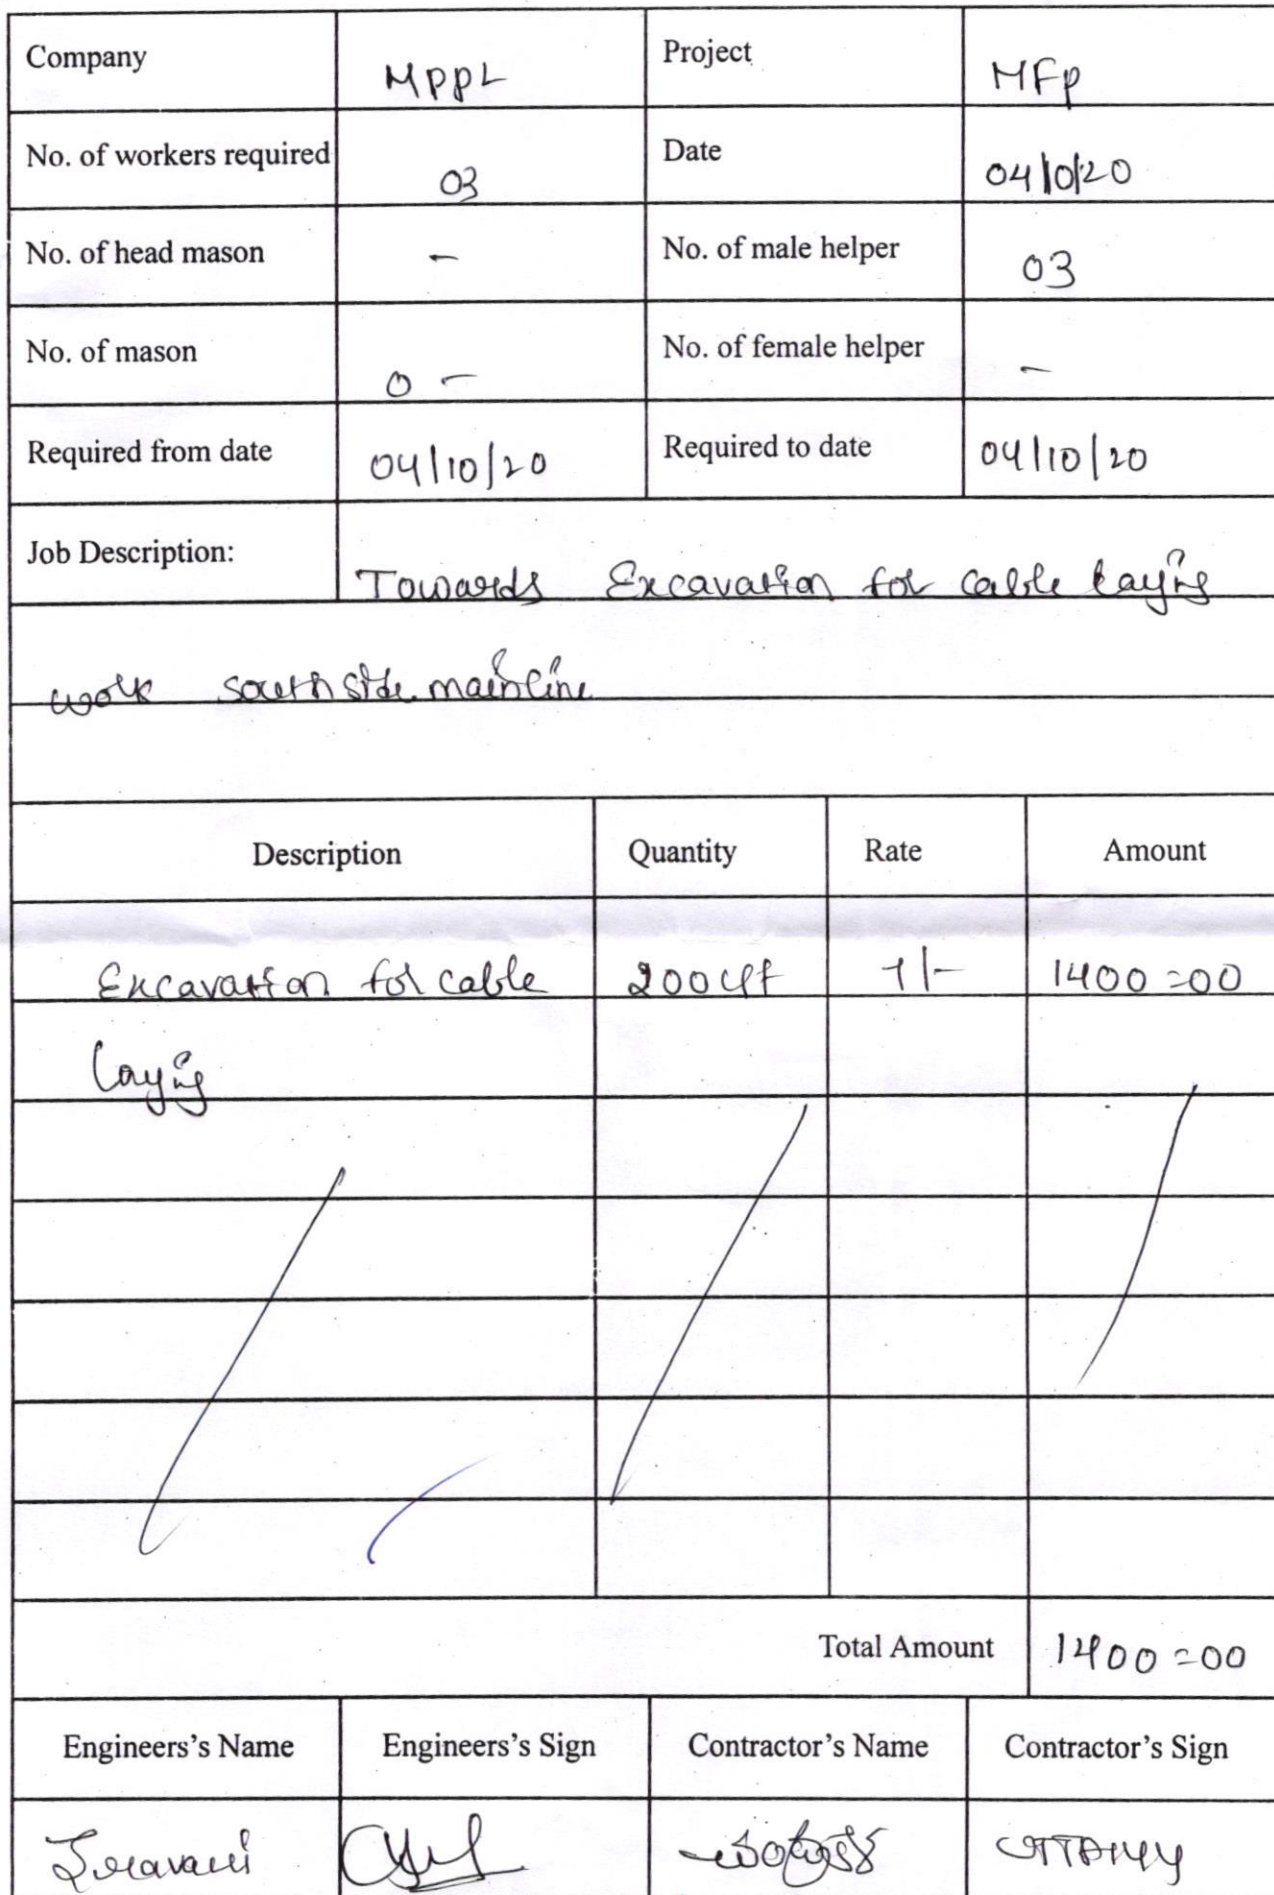 Company MPPL Project MFP
No. of workers required 03 Date 04/10/20
No. of head mason - No. of male helper 03
No. of mason 0 - No. of female helper -
Required from date 04/10/20 Required to date 04/10/20
Job Description: Towards Excavation for cable laying
work south side mainline
Description Quantity Rate Amount
Excavation for cable 200 cft 7/- 1400=00
laying
Total Amount 1400=00
Engineers's Name Engineers's Sign Contractor's Name Contractor's Sign